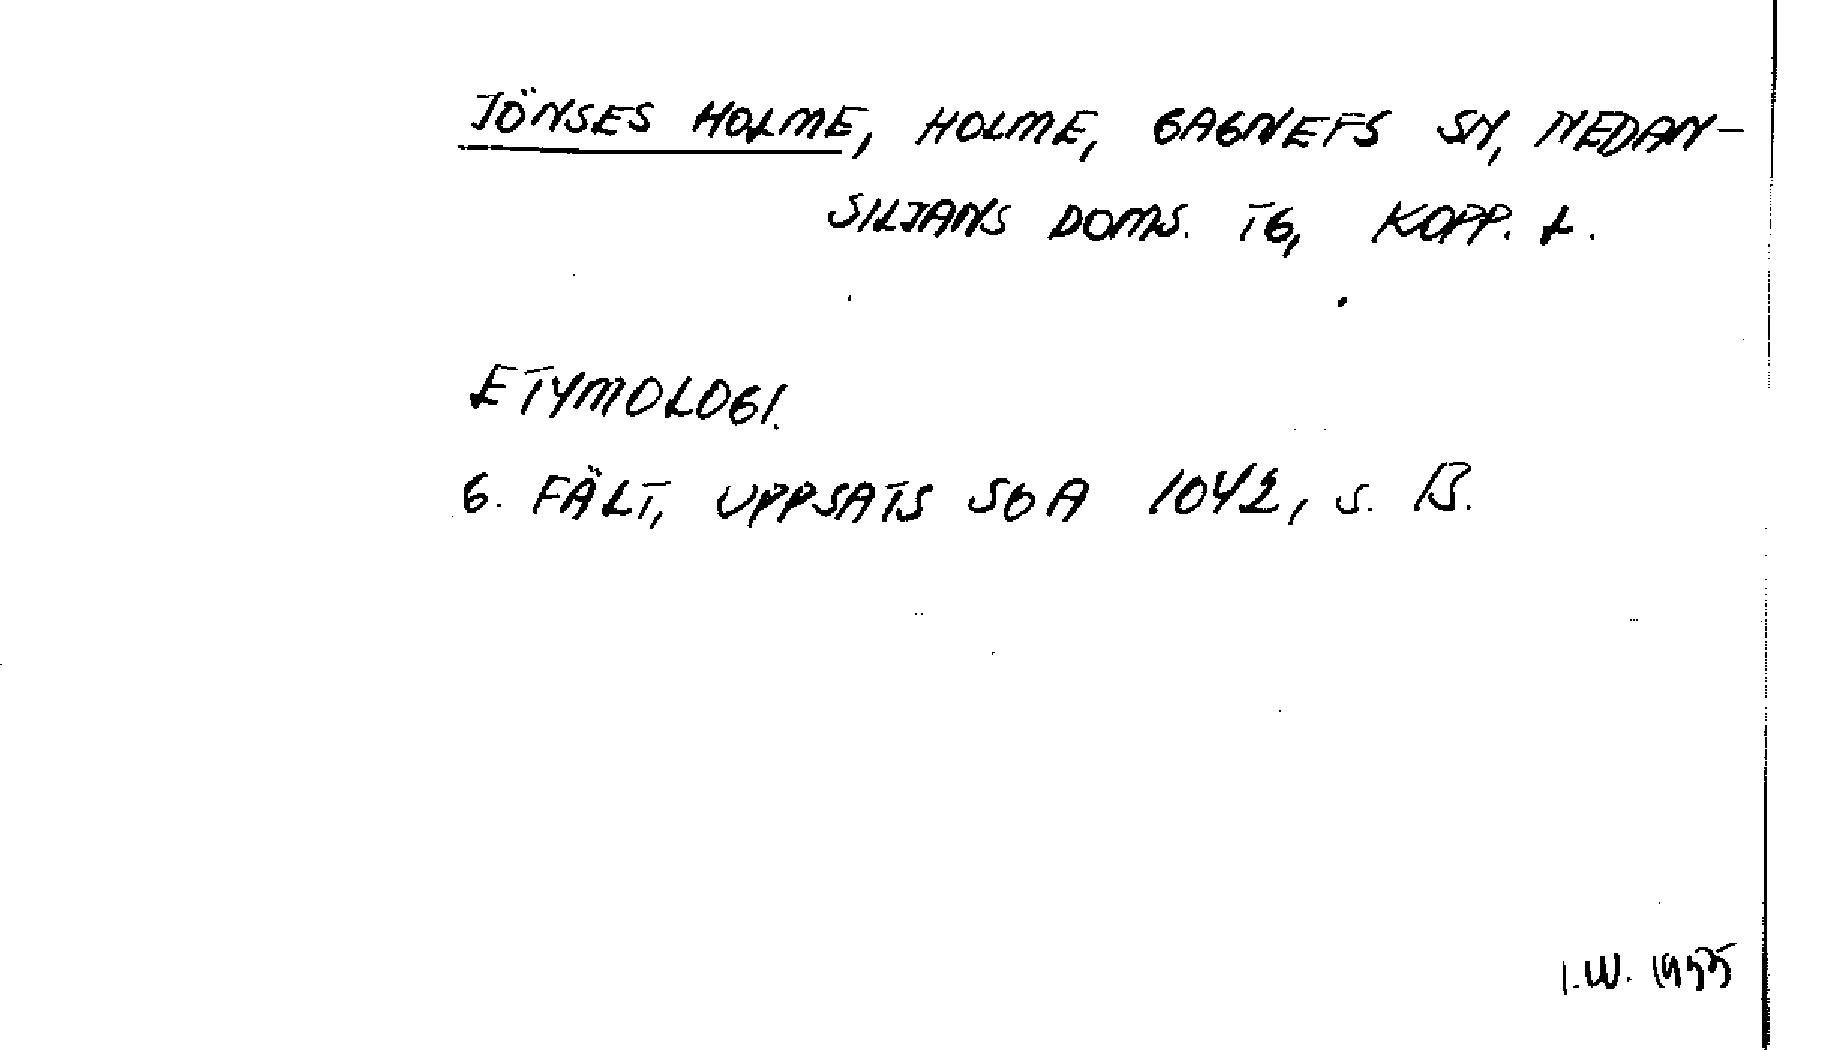 JÖNSES HOLME, HOLME, GAGNEFS SN, NEDAN-
SILJANS DOMS. TG, KOPP. L.
ETYMOLOGI.
G. FÄLT, UPPSATS SOA 1042, s. 13.
I.W. 1955